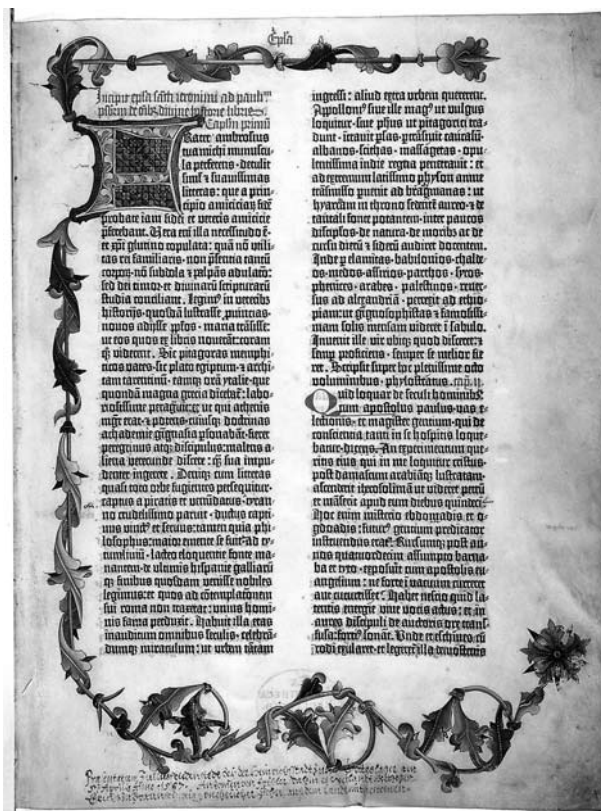 Ep̄la
Incipit ep̄la sc̄ti ieronimi ad paulinū
p̄sbiterū de ōnib⁹ divine historie libris.
Capl̄m primū
FRater ambrosius
tua michi munuscu-
la perferens · detulit
sim̄l ⁊ suavissimas
litteras: que a prin-
cipio amiciciaꝝ
probate iam fidei et veteris amicicie
p̄ferebant. Vera em̄ illa necessitudo ē·
et xp̄i glutino copulata: quā nō utili-
tas rei familiaris · non p̄sentia tantū
corpoꝝ · nō subdola ⁊ palpās adulatō:
sed dei timor · et divinaꝝ scripturaꝝ
studia conciliant. Legim⁹ in veterib⁹
historijs · quosdā lustrasse ꝓvincias·
novos adijsse ppl̄os · maria trāsisse:
ut eos quos ex libris noverāt: coram
qꝫ viderent. Sic pitagoras memphi-
ticos vates · sic plato egiptum · ⁊ archi-
tam tarentinū · eamqꝫ orā ytalie · que
quondā magna grecia dicebat̄: labo-
riosissime peragravit: et ut qui athenis
mgr̄ erat · ⁊ potens · cuiusqꝫ doctrinas
achademie gignasia ꝑsonabāt: fieret
peregrinus atqꝫ discipulus: malens a-
liena verecunde discere: qꝫ sua impu-
denter ingerere. Deniqꝫ cum litteras
quasi toto orbe fugientes persequitur·
captus a piratis et venūdatus · tyran-
no crudelissimo paruit · ductus capti-
vus vinct⁹ et servus: tamen quia phi-
losophus: maior emente se fuit: ad ty-
tumlivium · lacteo eloquentie fonte ma-
nantem · de ultimis hispanie galliaꝝ
qꝫ finibus quosdam venisse nobiles
legimus: et quos ad cōtemplacōnem
sui roma non traxerat: unius homi-
nis fama perduxit. Habuit illa etas
inauditum omnibus seculis · celebrā-
dumqꝫ miraculum: ut urbem tātam
ingressi: aliud extra urbem quererent.
Appollon⁹ sive ille mag⁹ ut vulgus
loquitur · sive ph̄us · ut pitagorici tra-
dunt · intravit ꝑsas · ꝑtrāsivit caucasū·
albanos · scithas · massagetas · opu-
lentissima indie regna penetravit: et
ad extremum latissimo physon amne
trāsmisso ꝑvenit ad bragmanas: ut
hyarcam in throno sedentē aureo · ⁊ de
tantali fonte potantem · inter paucos
discipl̄os · de natura · de moribs ac de
cursu dierū ⁊ siderū audiret docentem.
Inde ꝑ elamitas · babilonios · chalde-
os · medos · assirios · parthos · syros·
phenices · arabes · palestinos · rever-
sus ad alexandriā · perrexit ad ethio-
piam: ut gignosophistas ⁊ famosissi-
mam solis mensam videret ī sabulo.
Invenit ille vir ubiqꝫ quod disceret: ⁊
semꝑ proficiens · semper se melior fie-
ret. Scripsit super hoc plenissime octo
voluminibus · phylostratus. cap̄. ij.
Quid loquar de seculi hominib⁹:
cum apostolus paulus · vas e-
lectionis · et magister gentium · qui de
conscientia tanti in se hospitis loque-
batur · dicens. An experimentum que-
ritis eius qui in me loquitur cristus·
post damascum arabiāqꝫ lustratam:
ascenderit iherosolimā ut videret petrū
et māserit apud eum diebus quindeci.
Hoc enim misterio ebdomadis et o-
gdoadis: futur⁹ gentium predicator
instruendus erat. Rursumqꝫ post an-
nos quatuordecim assumpto barna-
ba et tyto · exposuit cum apostolis eu-
angelium: ne forte ī vacuum curreret
aut cucurrisset. Habet nescio quid la-
tentis energie vive vocis actus: et in
aures discipuli de auctoris ore trans-
fusa: forti⁹ sonat. Unde et eschines · cū
rodi exularet · et legeret̄ illa demostenis